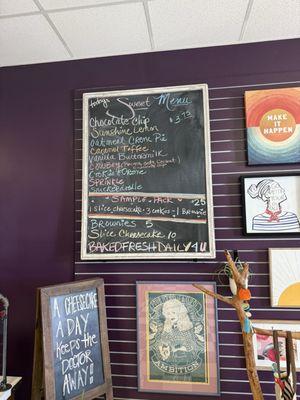 today's Sweet Menu
Chocolate Chip $3.75
Sunshine Lemon
Oatmeal Creme Pie
Caramel Toffee
Vanilla Buttermilk
Cowboy
Cookies & Creme
SPRINKLE
Snickerdoodle
SAMPLE PACK $25
1 slice cheesecake · 3 cookies · 1 Brownie
BROWNIES 5
Slice Cheesecake 10
BAKED FRESH DAILY 4U
MAKE IT
HAPPEN
A CHEESECAKE
A DAY
KEEPS THE
DOCTOR
AWAY!!
AMBITION